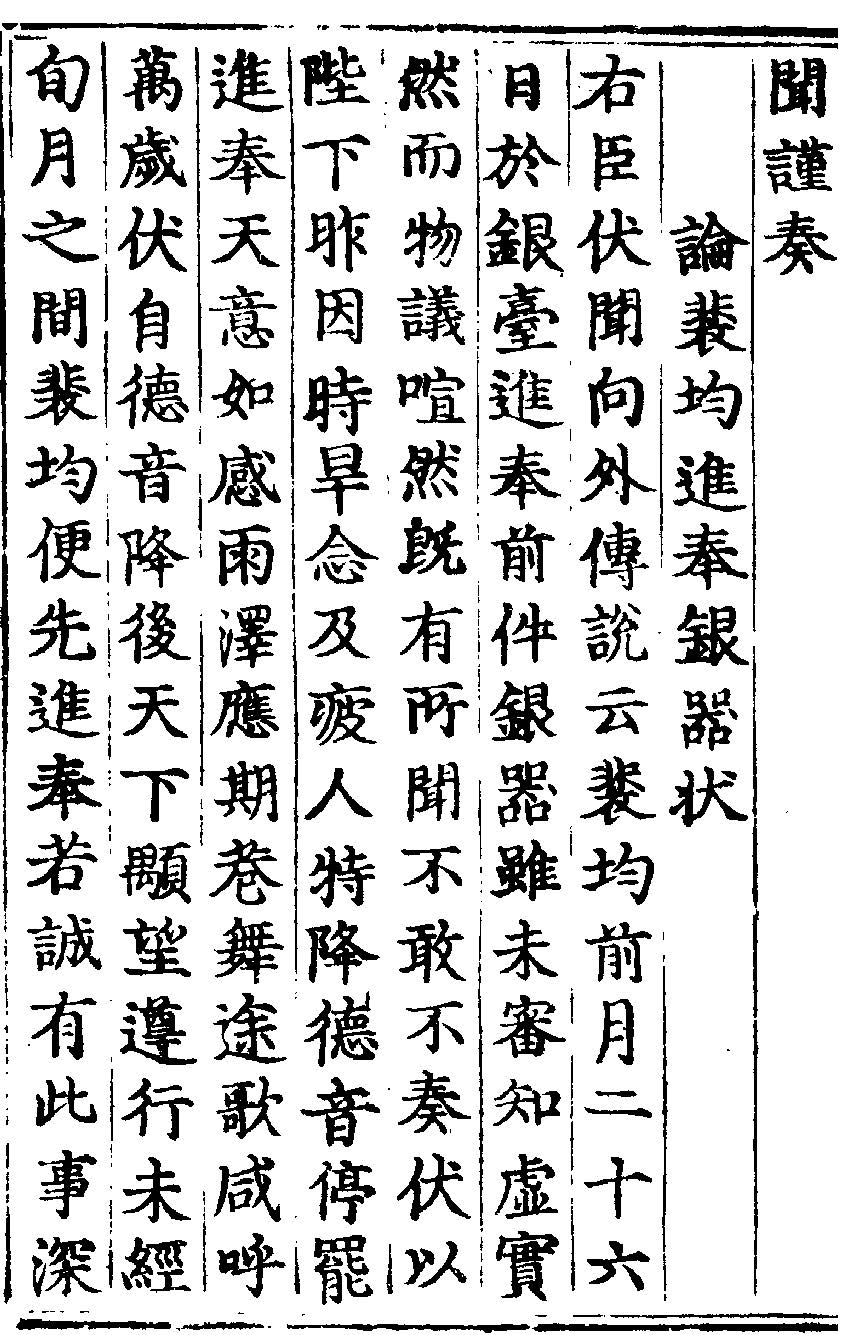 聞謹奏
論裴均進奉銀器狀
右臣伏聞向外傳說云裴均前月二十六
日於銀臺進奉前件銀器雖未審知虛實
然而物議喧然既有所聞不敢不奏伏以
陛下昨因時旱念及疲人特降德音停罷
進奉天意如感雨澤應期巷舞途歌咸呼
萬歲伏自德音降後天下顒望遵行未經
旬月之間裴均便先進奉若誠有此事深